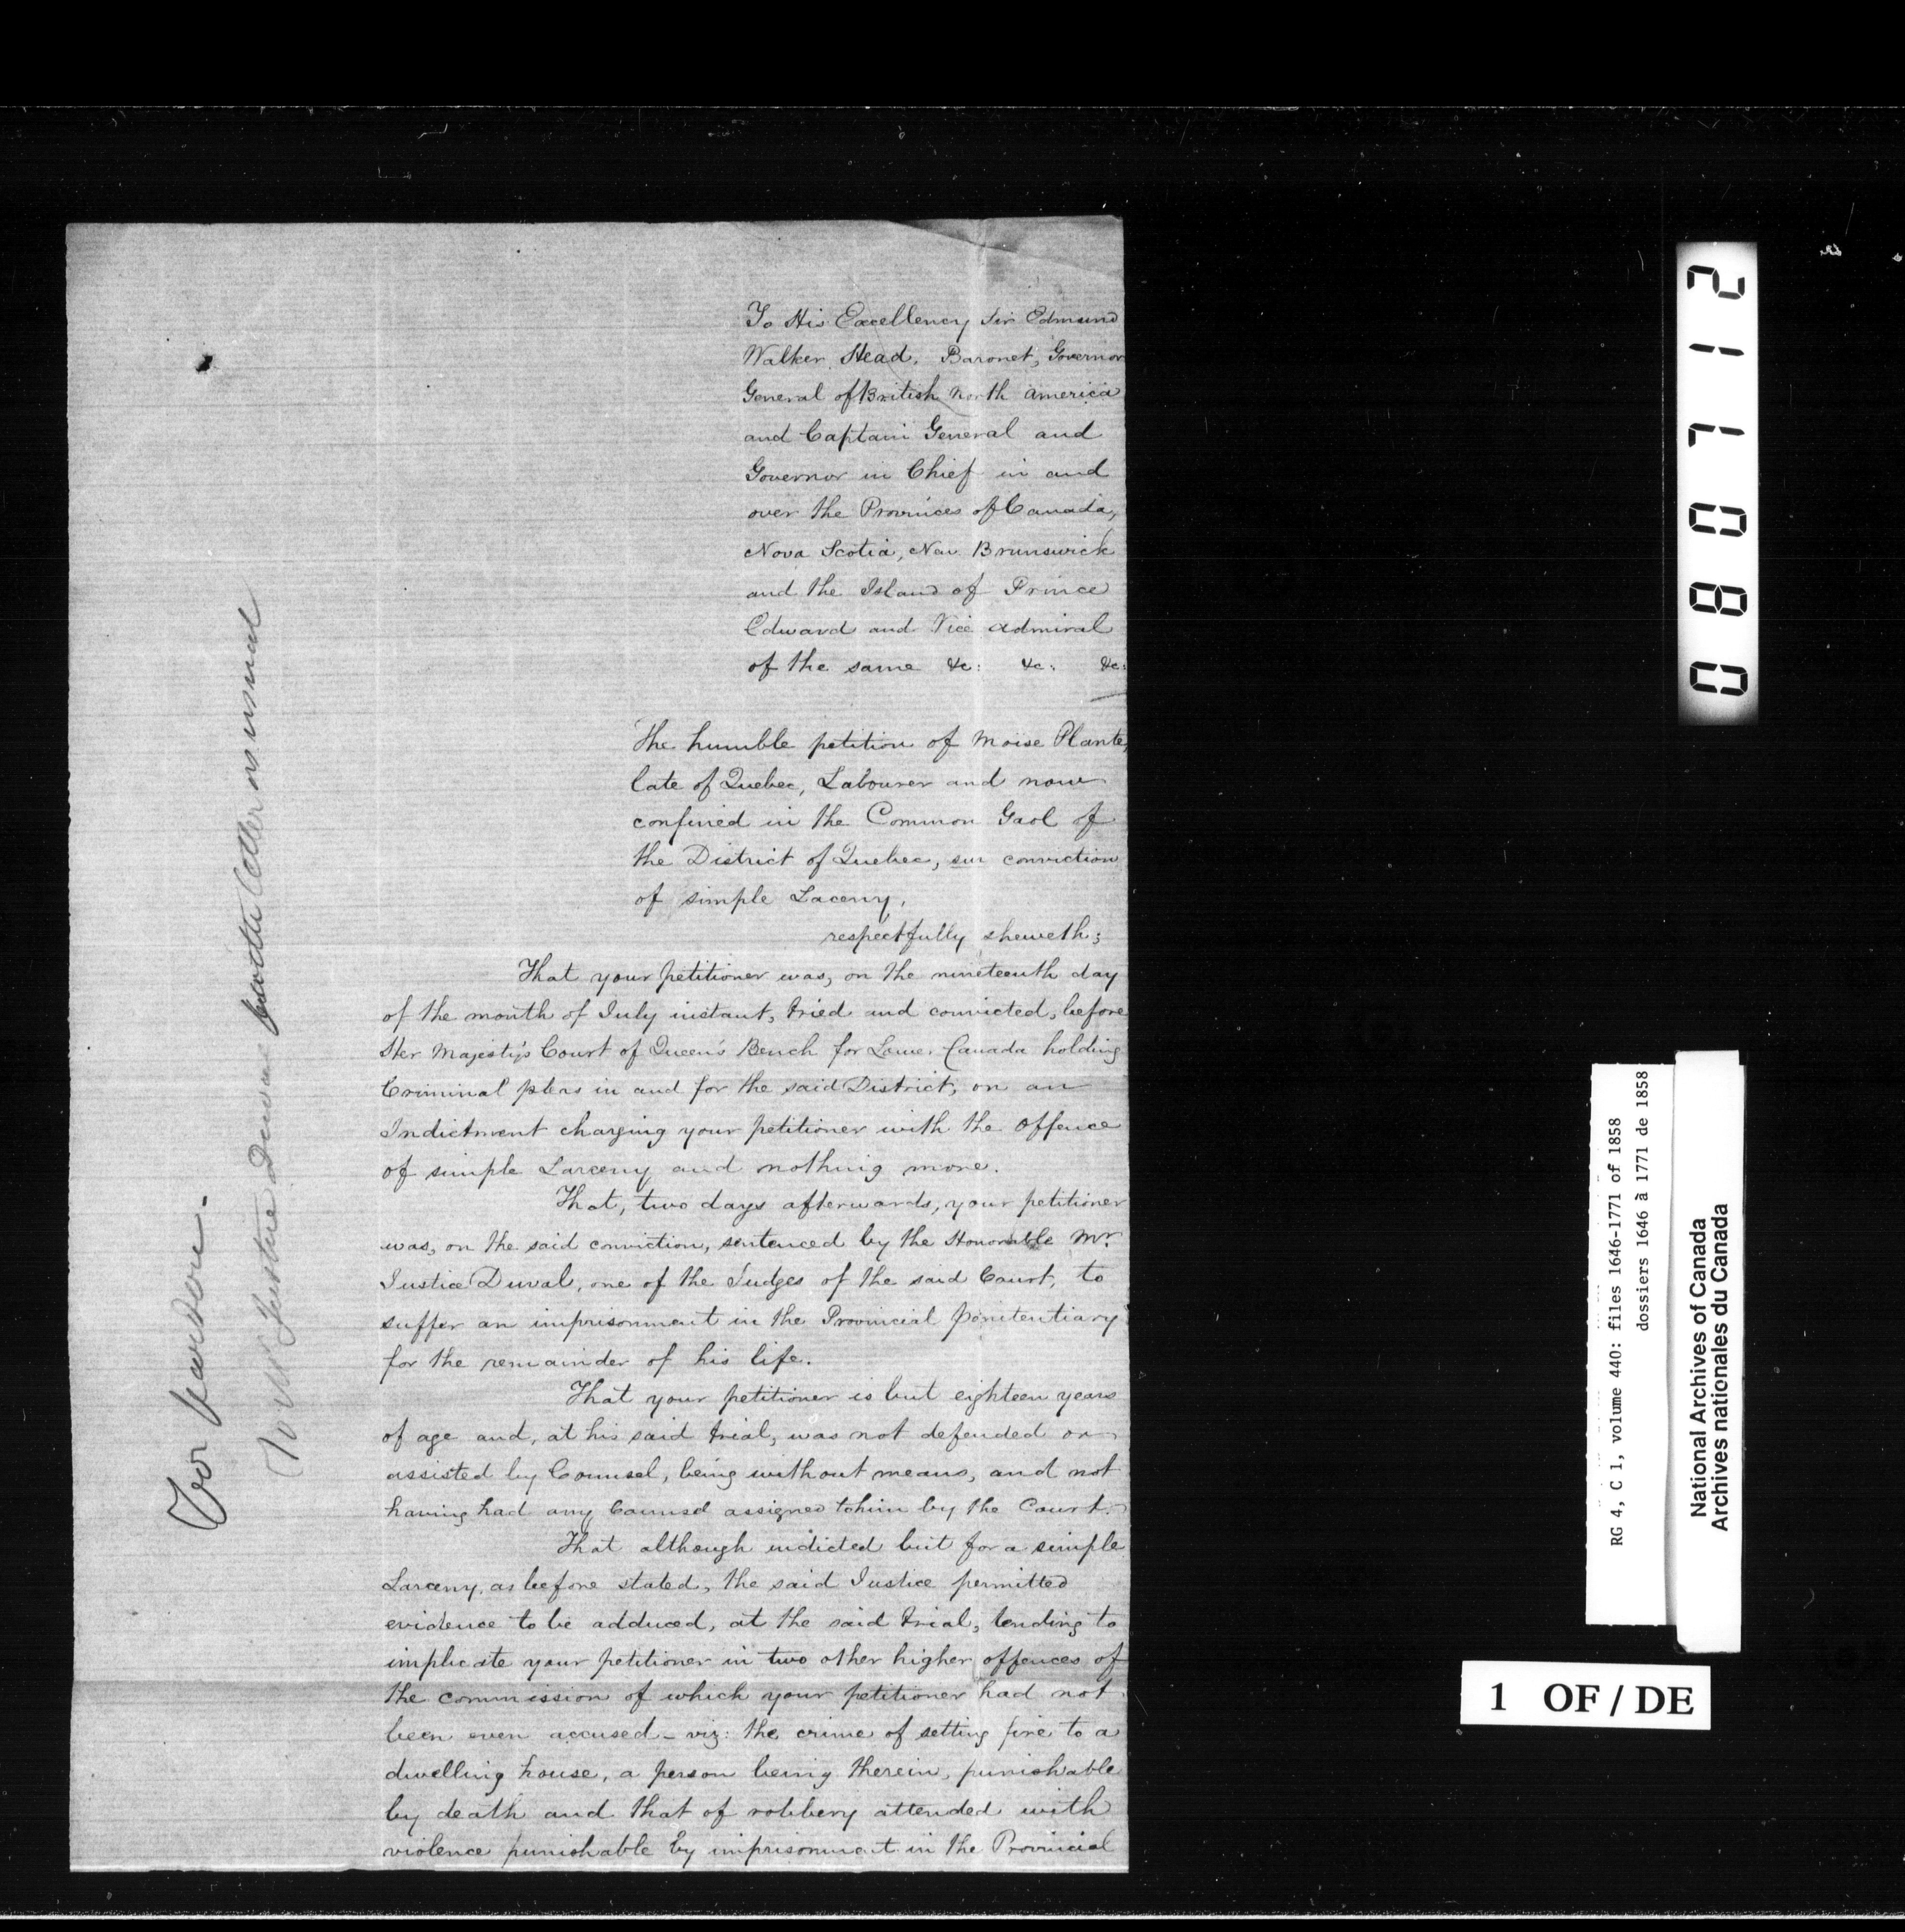 To His Excellency Sir Edmund
Walker Head, Baronet, Governor
General of British North America
and Captain General and
Governor in Chief in and
over the Provinces of Canada,
Nova Scotia, New Brunswick
and the Island of Prince
Edward and Vice Admiral
of the same &c: &c: &c:
The humble petition of Moise Plante,
late of Quebec, Labourer and now
confined in the Common Gaol of
the District of Quebec, sur conviction
of simple Laceny,
respectfully sheweth;
That your petitioner was, on the nineteenth day
of the month of July instant, tried and convicted, before
Her Majesty's Court of Queen's Bench for Lower Canada holding
Criminal pleas in and for the said District, on an
Indictment charging your petitioner with the offence
of simple Larceny and nothing more.
That, two days afterwards, your petitioner
was, on the said conviction, sentenced by the Honorable Mr.
Justice Duval, one of the Judges of the said Court, to
suffer an imprisonment in the Provincial penitentiary
for the remainder of his life.
That your petitioner is but eighteen years
of age and, at his said trial, was not defended or
assisted by Counsel, being without means, and not
having had any Counsel assigned to him by the Court.
That although indicted but for a simple
Larceny, as before stated, the said Justice permitted
evidence to be adduced, at the said trial, tending to
implicate your petitioner in two other higher offences of
the commission of which your petitioner had not
been even accused - viz: the crime of setting fire to a
dwelling house, a person being therein, punishable
by death and that of robbery attended with
violence punishable by imprisonment in the Provincial
For pardon.
Mr Justice Duval letter as usual
080712
RG 4, C 1, volume 440: files 1646-1771 of 1858
dossiers 1646 à 1771 de 1858
National Archives of Canada
Archives nationales du Canada
1 OF / DE